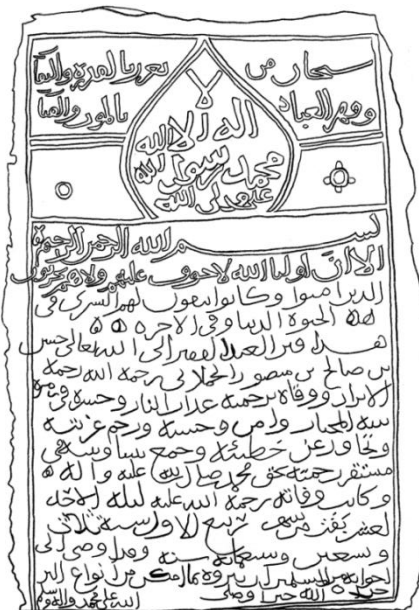 سبحان من تعزز بالقدرة والبقا
وقهر العباد بالموت والفنا
لا اله الا الله
محمد رسول الله
صلى الله عليه
بسم الله الرحمن الرحيم
الا ان اوليا الله لا خوف عليهم ولا هم يحزنون
الذين امنوا وكانوا يتقون لهم البشرى في
هذه الحيوة الدنيا وفي الاخرة
هذا قبر العبد الفقير الى الله تعالى حسن
بن صالح بن منصور رحمه الله رحمة
الابرار ووقاه برحمته عذاب النار وحشره في زمرة
نبيه المختار وامن وحشته ورحم غربته
وتجاوز عن خطيئته وجمع بيننا وبينه في
مستقر رحمته بحق محمد صلى الله عليه واله
وكانت وفاته رحمة الله عليه ليلة الاحد
لعشر بقين من شهر ربيع الاول سنة ثلاث
وتسعين وسبعمائة سنة وقد اوصى الى
من انواع البر
الله خيرا وصلى الله على محمد واله وسلم